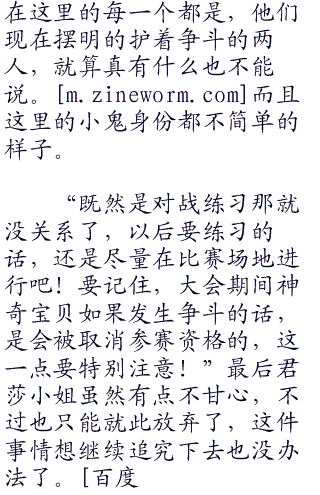 在这里的每一个都是，他们
现在摆明的护着争斗的两
人，就算真有什么也不能
说。[m.zineworm.com]而且
这里的小鬼身份都不简单的
样子。
“既然是对战练习那就
没关系了，以后要练习的
话，还是尽量在比赛场地进
行吧！要记住，大会期间神
奇宝贝如果发生争斗的话，
是会被取消参赛资格的，这
一点要特别注意！”最后君
莎小姐虽然有点不甘心，不
过也只能就此放弃了，这件
事情想继续追究下去也没办
法了。[百度